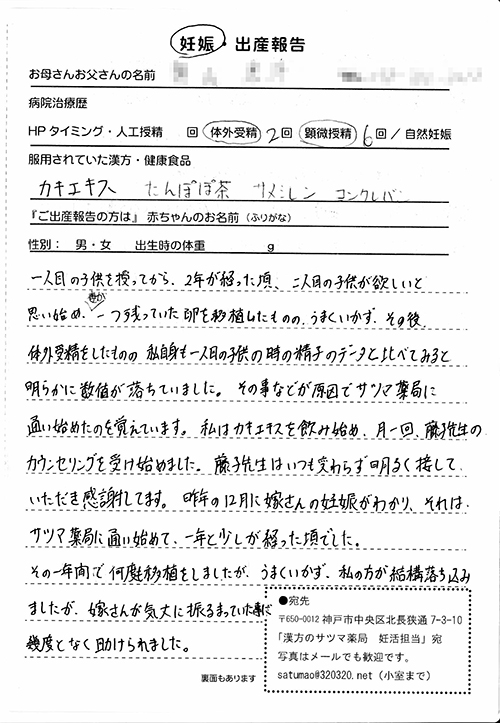 妊娠・出産報告
お母さんお父さんの名前
病院治療歴
HP タイミング・人工授精 回 体外受精 2回 顕微授精 6回 / 自然妊娠
服用されていた漢方・健康食品
カキエキス たんぽぽ茶 サメミレン コンクレバン
『ご出産報告の方は』赤ちゃんのお名前（ふりがな）
性別： 男・女 出生時の体重 g
一人目の子供を授ってから、2年が経った頃、二人目の子供が欲しいと
思い始め、一つ残っていた卵を移植したものの、うまくいかず、その後、
体外受精をしたものの 私自身も一人目の子供の時の精子のデータと比べてみると
明らかに数値が落ちていました。その事などが原因でサツマ薬局に
通い始めたのを覚えています。私はカキエキスを飲み始め、月一回、藤子先生の
カウンセリングを受け始めました。藤子先生はいつも変わらず明るく接して
いただき感謝してます。昨年の12月に嫁さんの妊娠がわかり、それは、
サツマ薬局に通い始めて、一年と少しが経った頃でした。
その一年間で何度移植をしましたが、うまくいかず、私の方が結構落ち込み
ましたが、嫁さんが気丈に振るまっていた事に
幾度となく助けられました。
●宛先
〒650-0012 神戸市中央区北長狭通 7-3-10
「漢方のサツマ薬局 妊活担当」宛
写真はメールでも歓迎です。
satumao@320320.net（小室まで）
裏面もあります